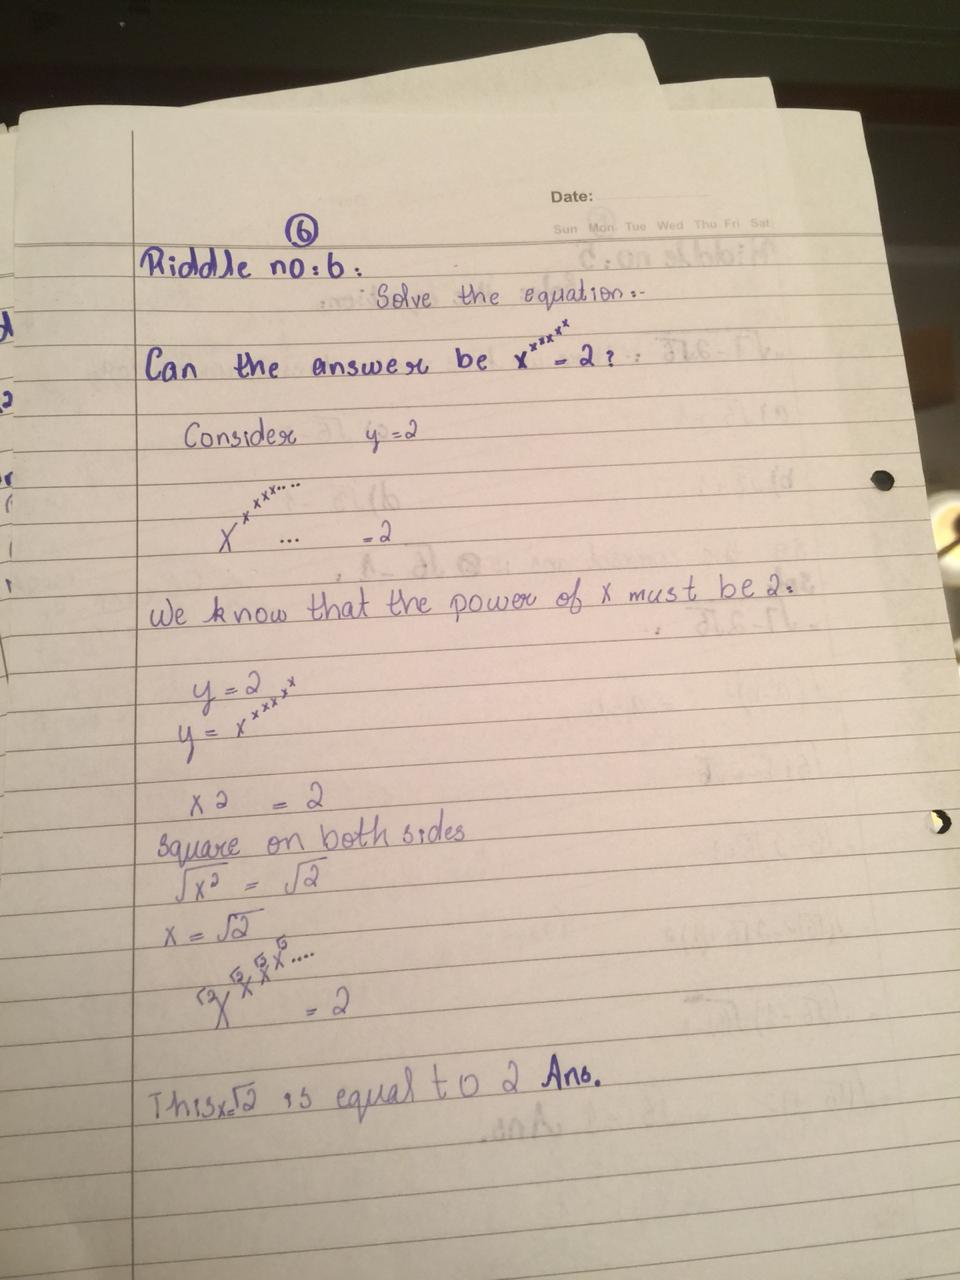 Date:
⑥
Sun Mon Tue Wed Thu Fri Sat
Riddle no:6:
Solve the equation:-
Can the answer be x^x^x^x^x^x = 2?
Consider y = 2
x^x^x^x^x.... ... = 2
We know that the power of x must be 2.
y = 2
y = x^x^x^x^x^x
x2 = 2
square on both sides
√x² = √2
x = √2
= 2
This x=√2 is equal to 2 Ans.